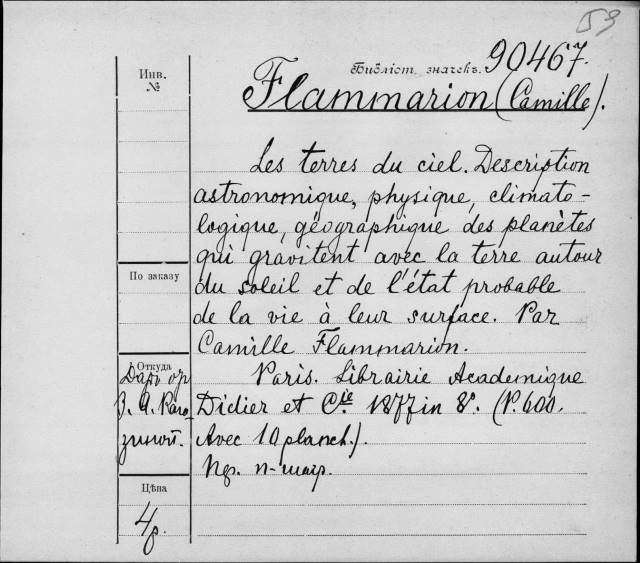 59
Библіот. значекъ. 90467.
Инв.
№
Flammarion (Camille).
Les terres du ciel. Description
astronomique, physique, climato-
logique, géographique des planètes
qui gravitent avec la terre autour
По заказу
du soleil et de l'état probable
de la vie à leur surface. Par
Camille Flammarion.
Откуда
Paris. Librairie Academique
Didier et Cie. 1877 in 8º. (P. 600.
Avec 10 planch.).
Цѣна
4р